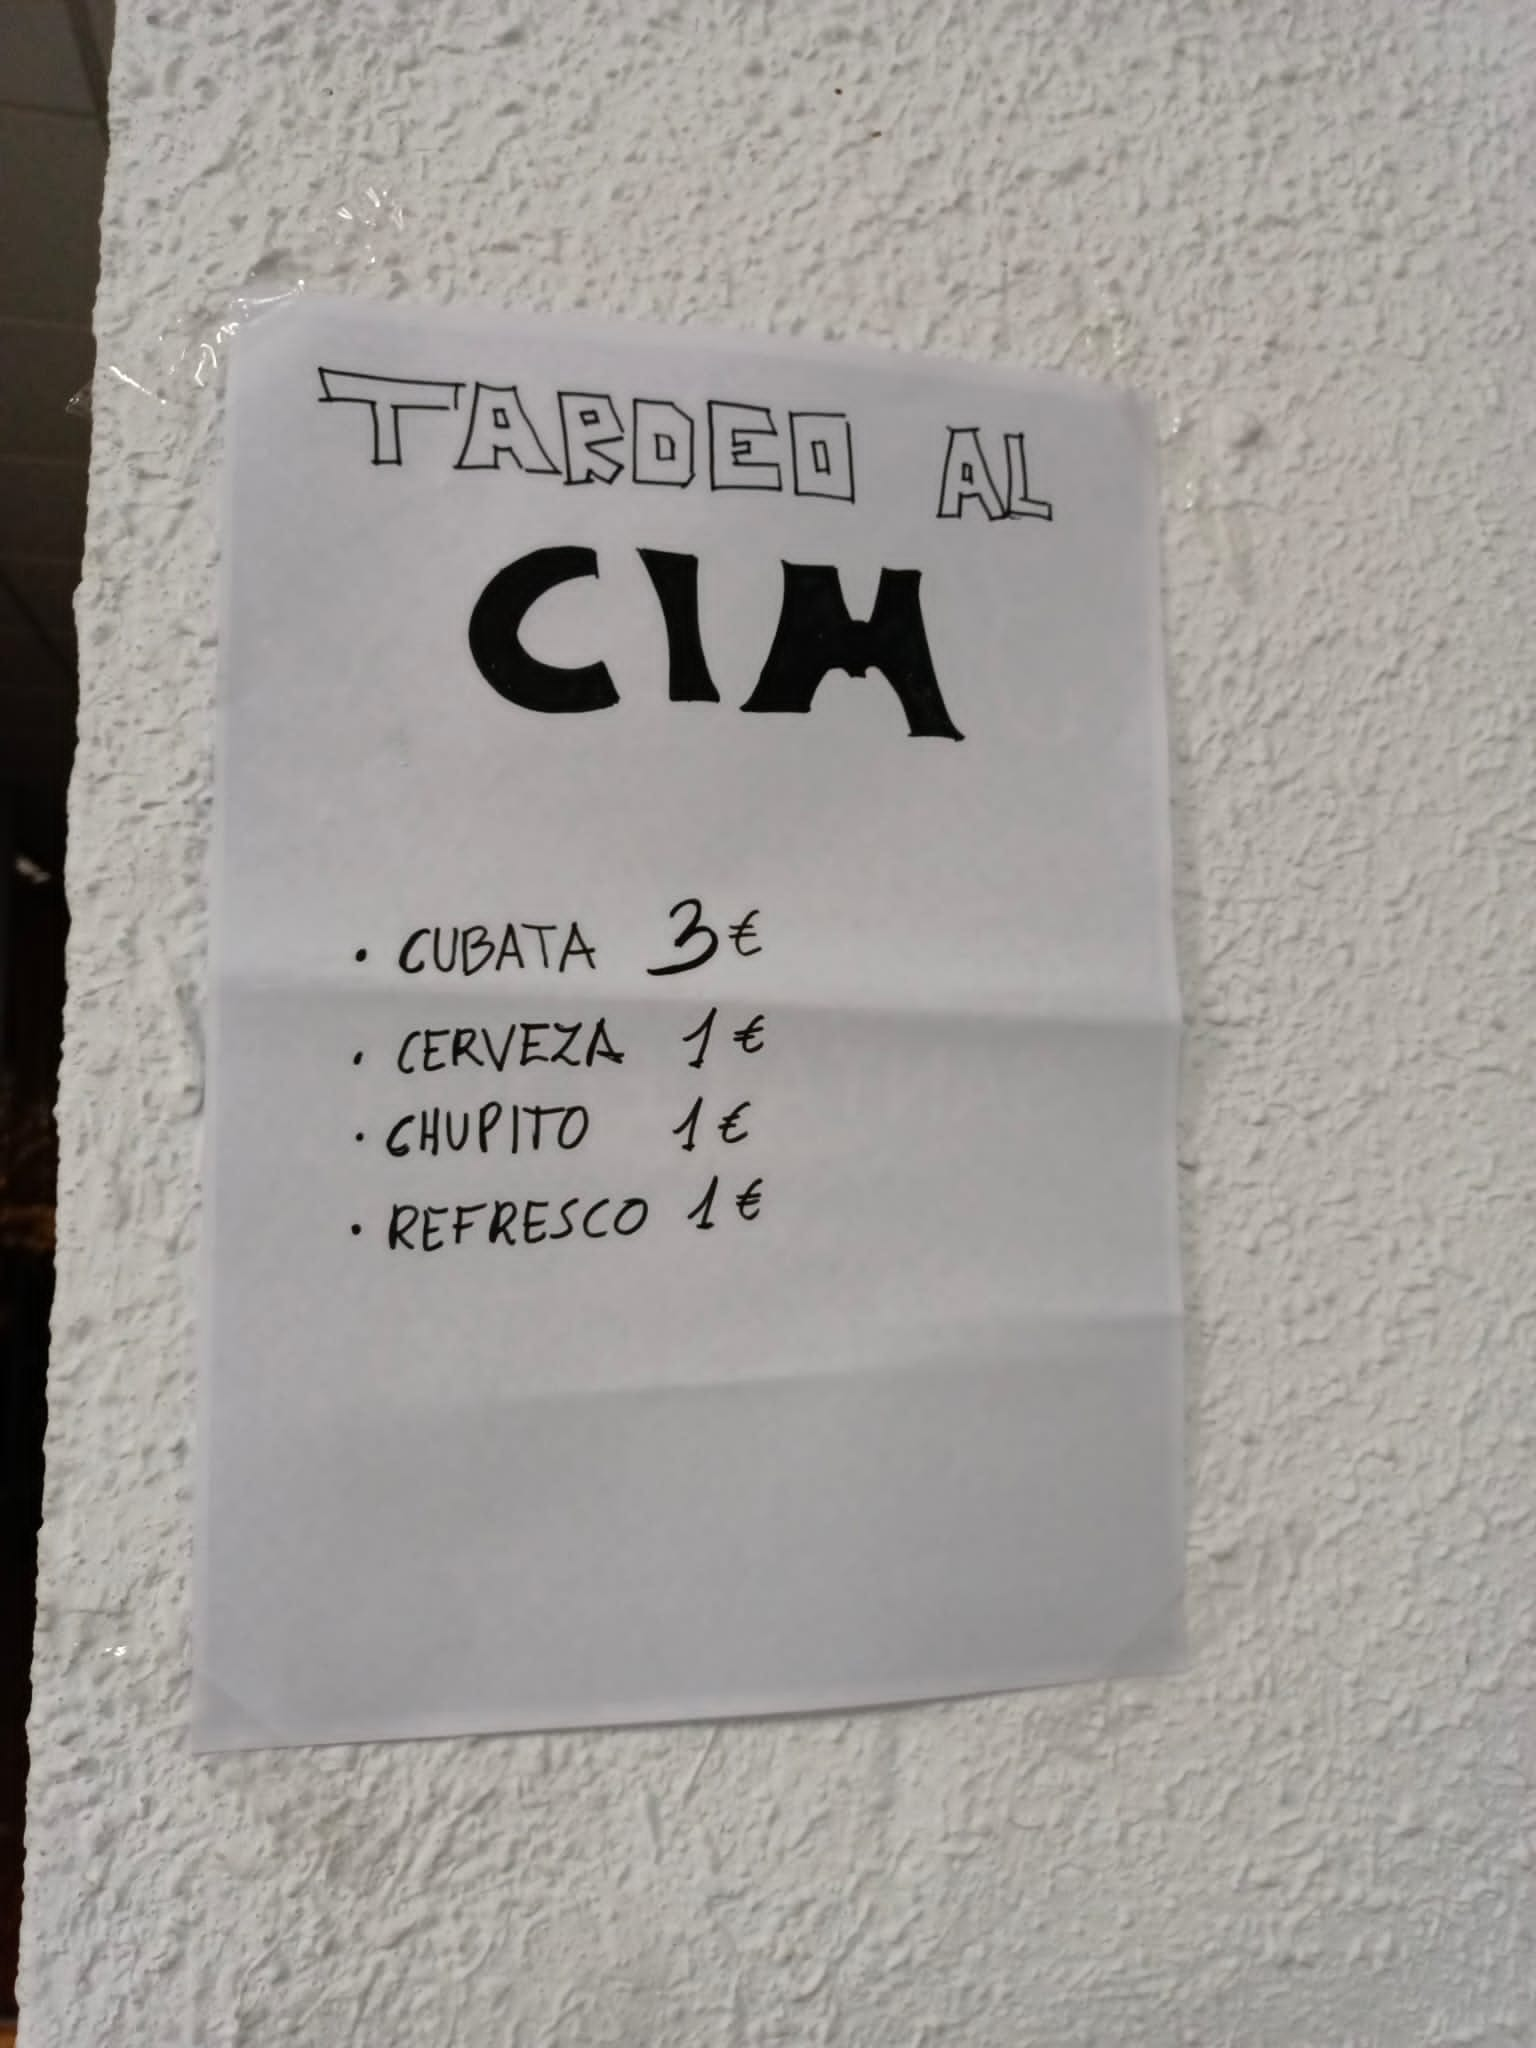 TARDEO AL
CIM
• CUBATA 3€
• CERVEZA 1€
• CHUPITO 1€
• REFRESCO 1€